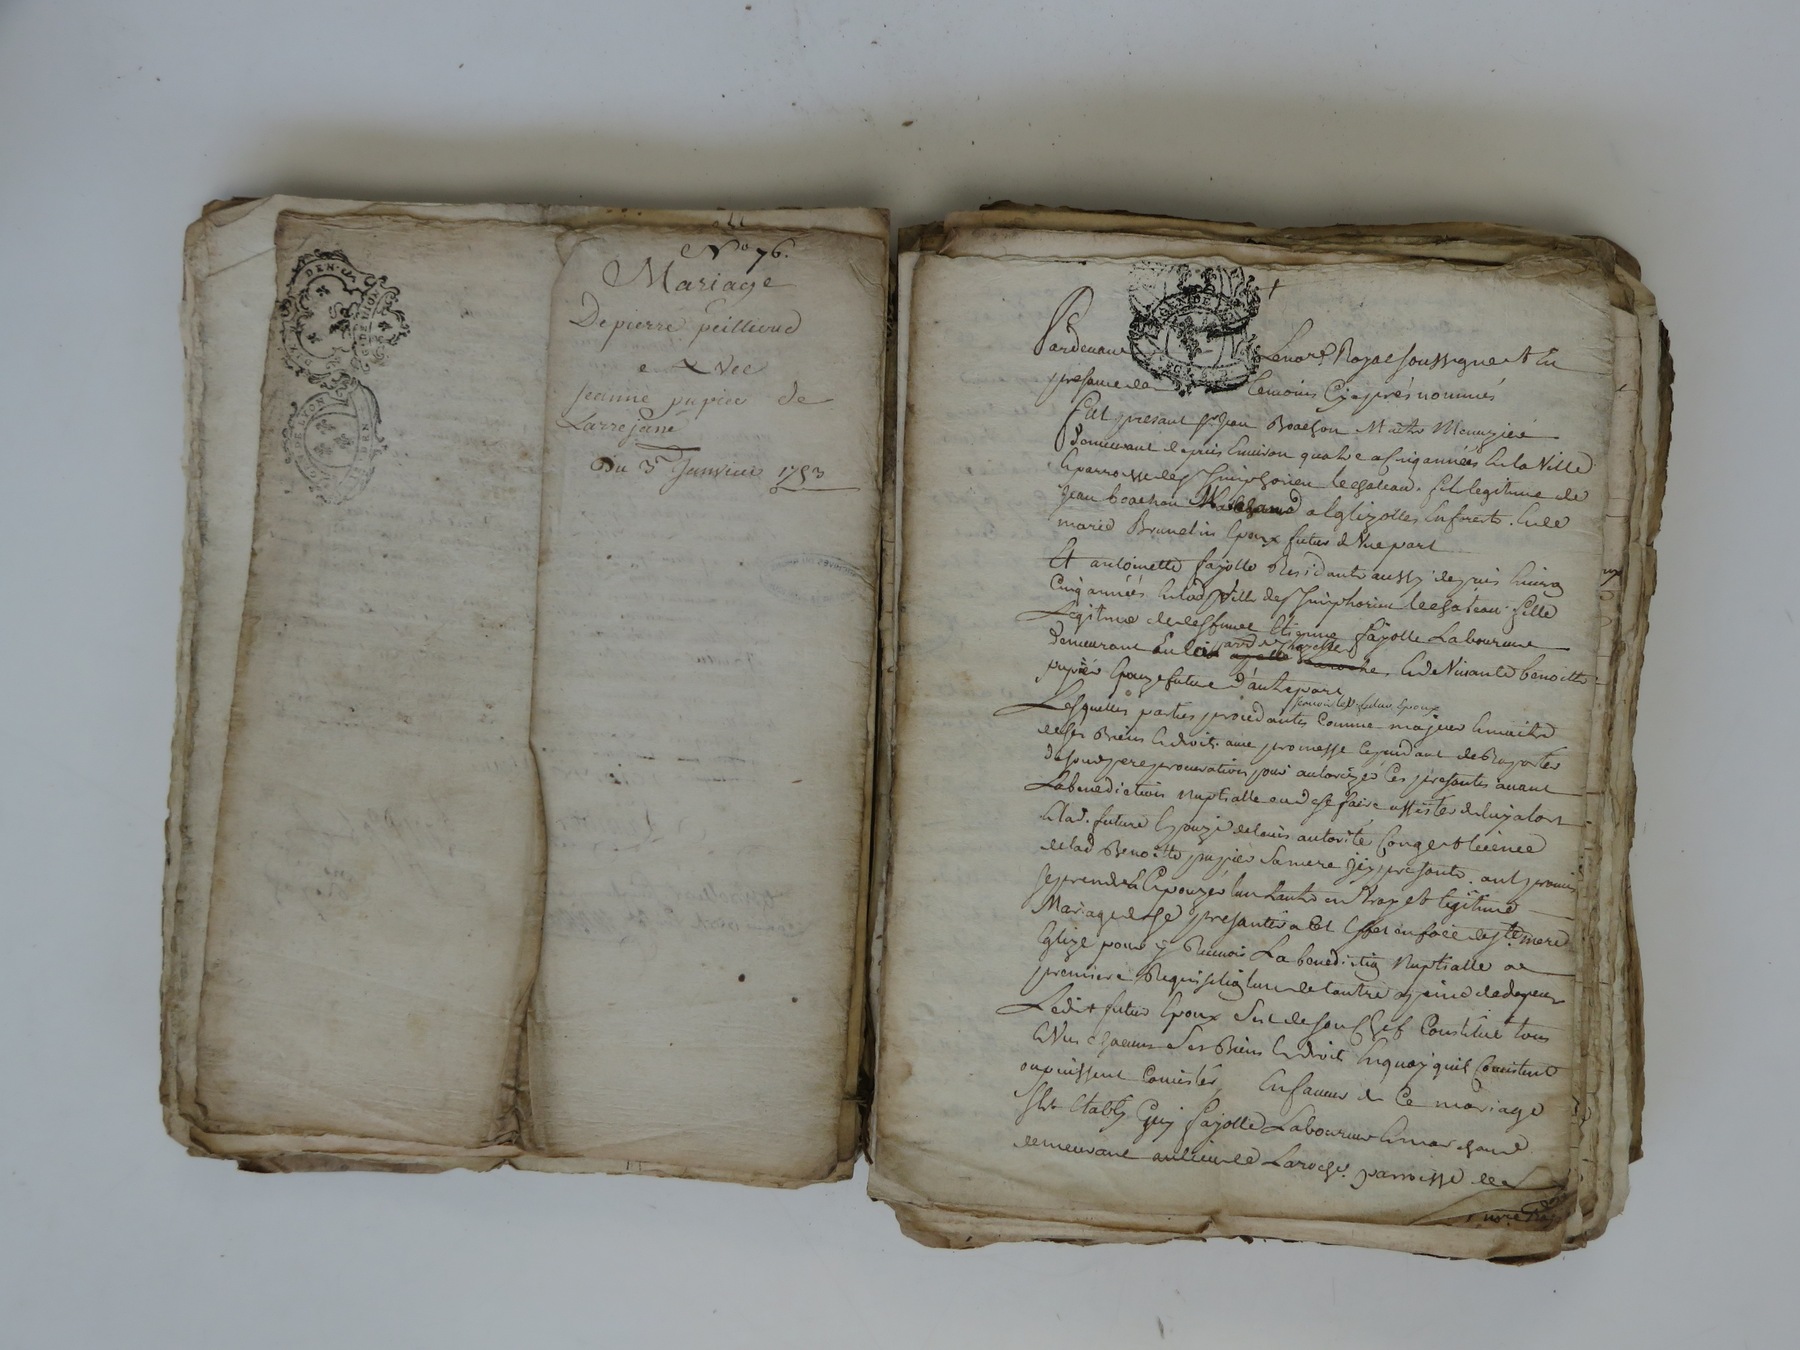 No 76.
Mariage
De pierre peillioud
avec
jeanne pupier de
Larrejasse
Du 3e Janvier 1753
Pardevant Le no.re Royal soussigné et En
presance de temoins Cy aprés nommés
Fut presant Sr jean Boachon Maitre Menuzier
demeurant depuis Environ quatre a Cinq années En la Ville
& parroisse de St simphorien le chateau. fils legitime de
jean boachon Marchand a Eglizolles En forests. & de
marie Brunelin Epoux futur d'Une part
Et antoinette fayolle Residante aussy depuis Environ
Cinq années En lad. Ville de St simphorien le chateau fille
Legitime de deffunct Etienne fayolle Laboureur
demeurant & de Vivante benoitte
pupier Epouze future d'autre part
scavoir led. futur Epoux
Lesquelles parties procedantes Comme majeur & maitre
de ses Biens & droits. avec promesse Cependant de Raporter
de son pere procuration pour autorizer Ces presantes avant
La benediction Nuptialle ou de se faire assister de luy alors
& lad. future Epouze de lavis autorité Congé et licence
de lad. Benoitte pupier sa mere icy presante. ont promis
se prendre & Epouzer lun Lautre en Vray et legitime
Mariage & se presanter a Cet Effet en face de Ste mere
Eglize pour y Recevoir La benediction Nuptialle a
premiere Requisition lun de lautre a peine de depens
Ledit futur Epoux s'est de son Chef Constitué tous
& Uns chacuns ses Biens & droits En quoy quils Consistent
ou puissent Consister. En faveur de Ce mariage
s'est Etably Guy fayolle Laboureur & marchand
demeurant au lieu de Laroche. parroisse de